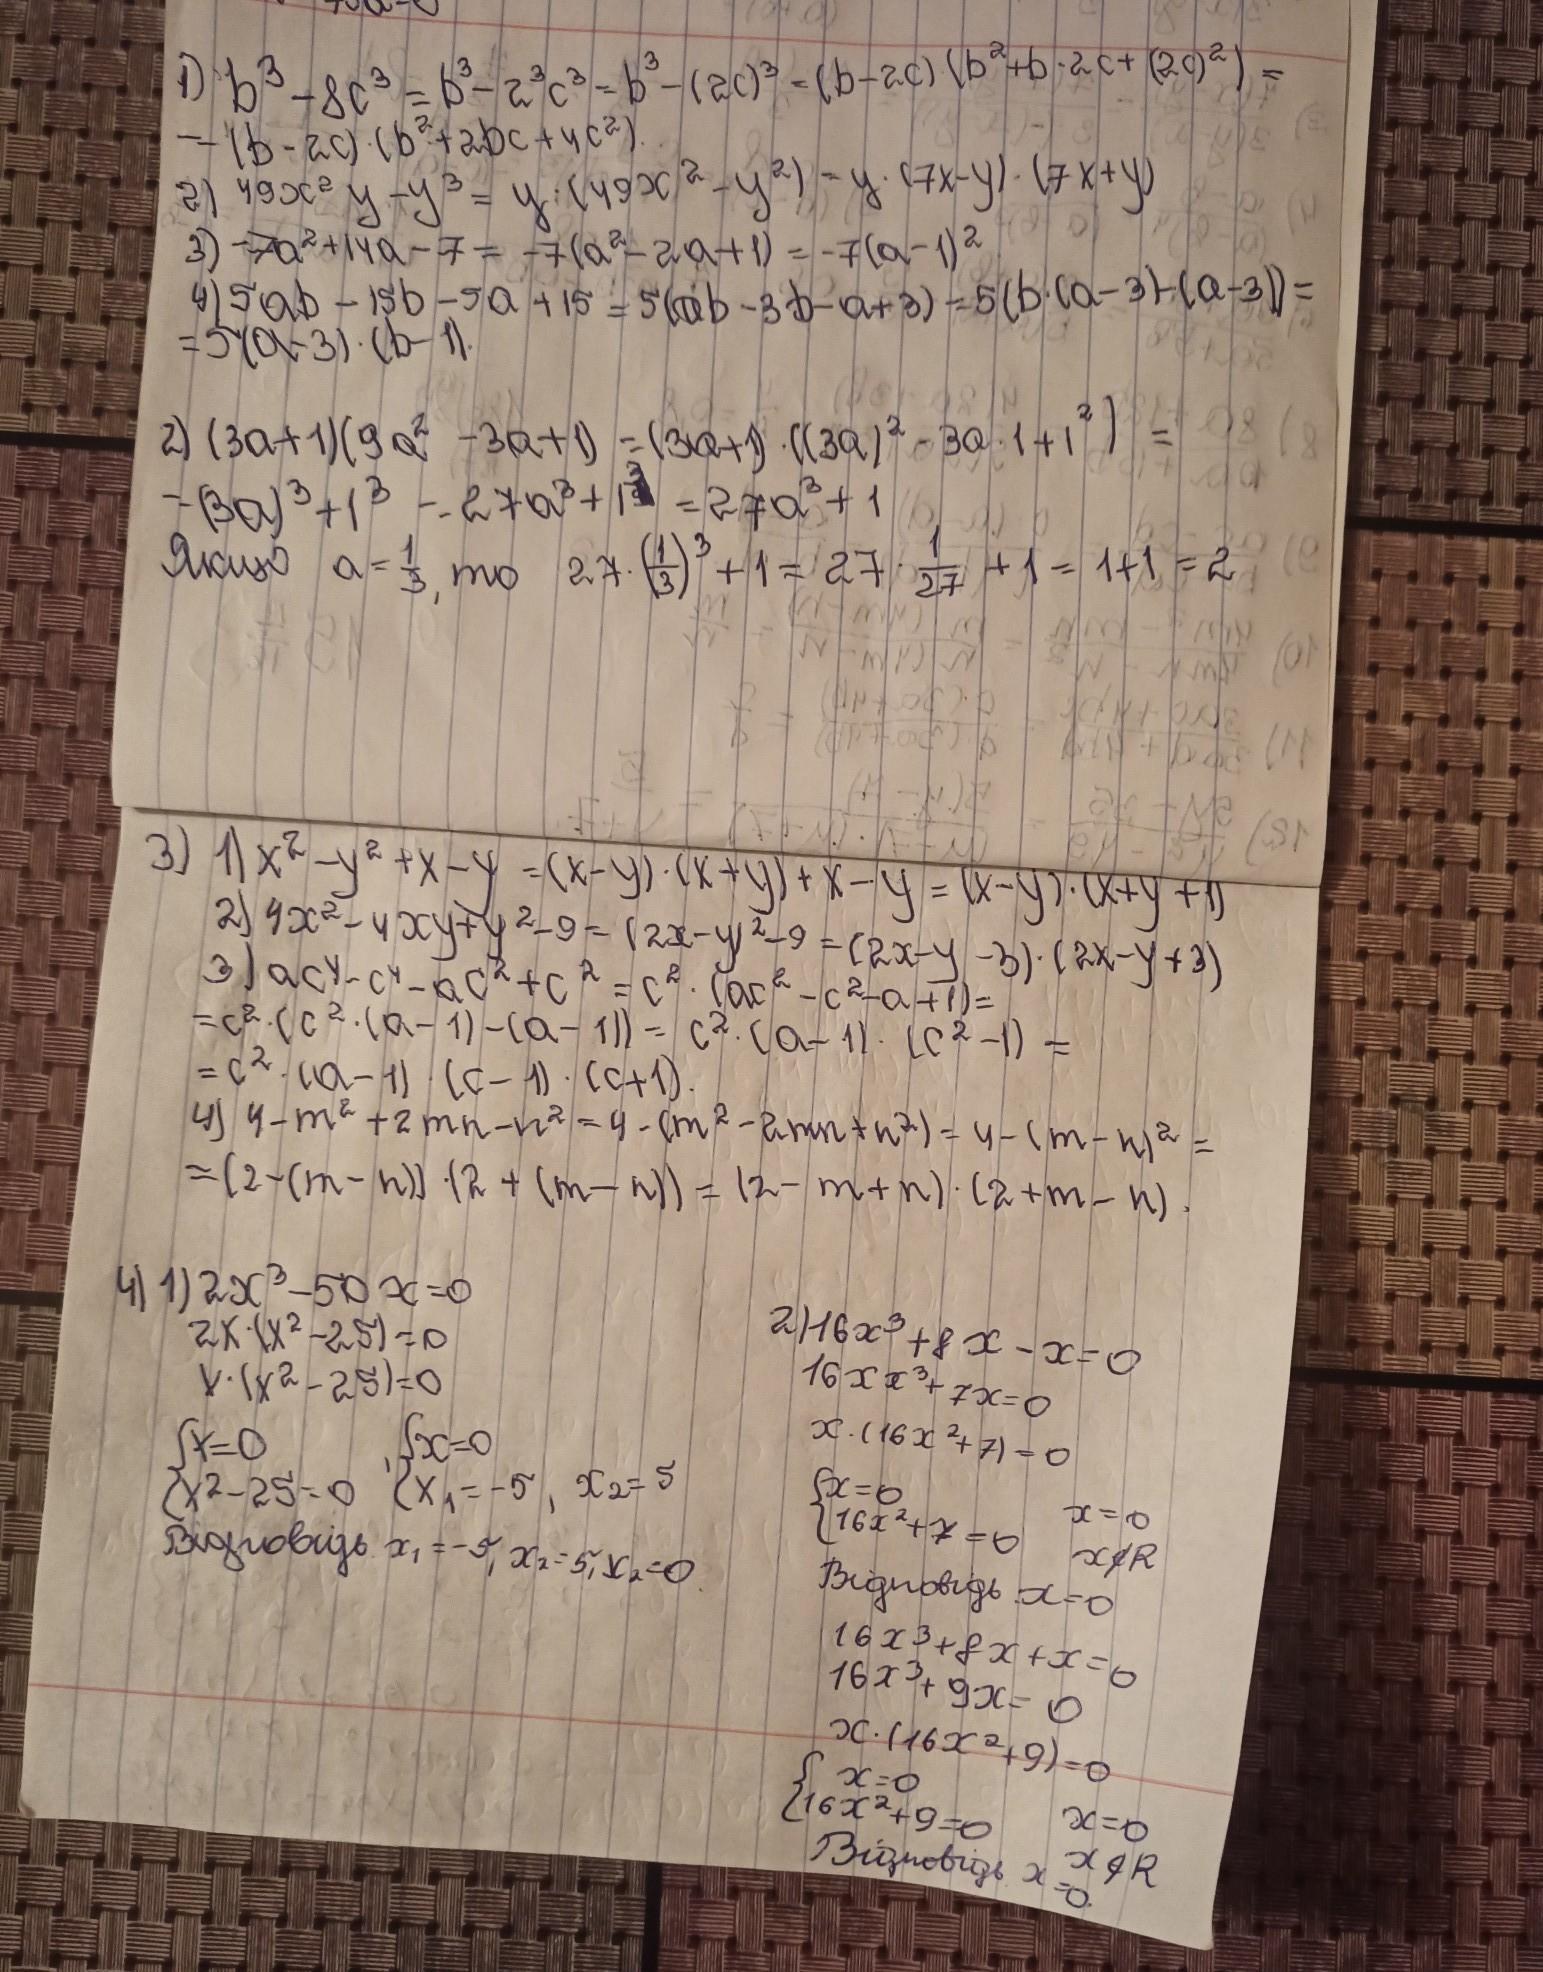 1) b³ - 8c³ = b³ - 2³c³ = b³ - (2c)³ = (b-2c)·(b²+b·2c+(2c)²) =
= (b-2c)·(b²+2bc+4c²).
2) 49x²y - y³ = y·(49x² - y²) = y·(7x-y)·(7x+y)
3) -7a²+14a-7 = -7(a²-2a+1) = -7(a-1)²
4) 5ab - 15b - 5a + 15 = 5(ab - 3b - a + 3) = 5(b·(a-3)-(a-3)) =
= 5(a-3)·(b-1).
2) (3a+1)(9a² - 3a+1) = (3a+1)·((3a)² - 3a·1+1²) =
= (3a)³+1³ = 27a³+1³ = 27a³+1
Якщо a = 1/3, то 27·(1/3)³ + 1 = 27·1/27 + 1 = 1+1 = 2
3) 1) x² - y² + x - y = (x-y)·(x+y)+x-y = (x-y)·(x+y+1)
2) 4x² - 4xy + y² - 9 = (2x-y)² - 9 = (2x-y-3)·(2x-y+3)
3) ac⁴ - c⁴ - ac² + c² = c²·(ac² - c² - a + 1) =
= c²·(c²·(a-1)-(a-1)) = c²·(a-1)·(c²-1) =
= c²·(a-1)·(c-1)·(c+1).
4) 4 - m² + 2mn - n² = 4 - (m² - 2mn + n²) = 4 - (m-n)² =
= (2-(m-n))·(2+(m-n)) = (2-m+n)·(2+m-n).
4) 1) 2x³ - 50x = 0
2x·(x² - 25) = 0
x·(x² - 25) = 0
{x=0 , {x=0
{x²-25=0 {x₁=-5, x₂=5
Відповідь x₁=-5, x₂=5, x₂=0.
2) 16x³ + 8x - x = 0
16xx³ + 7x = 0
x·(16x²+7) = 0
{x=0 x=0
{16x²+7=0 x∉R
Відповідь x=0
16x³ + 8x + x = 0
16x³ + 9x = 0
x·(16x²+9) = 0
{x=0 x=0
{16x²+9=0 x∉R
Відповідь x=0.